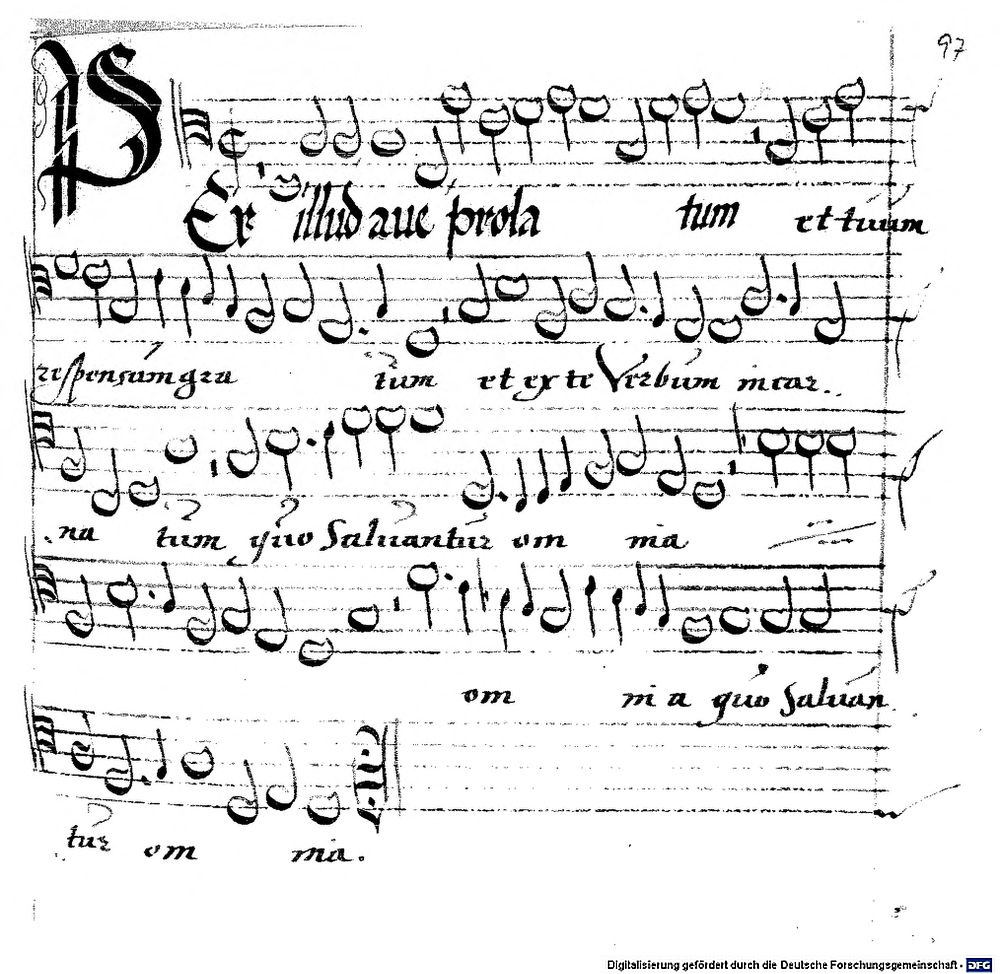 97
Per illud aue prola tum et tuum
respensum gra tum et ex te Verbum incar.
.na tum quo Saluantur om mia
om mi a quo Saluan
tur om mia.
Digitalisierung gefördert durch die Deutsche Forschungsgemeinschaft - DFG